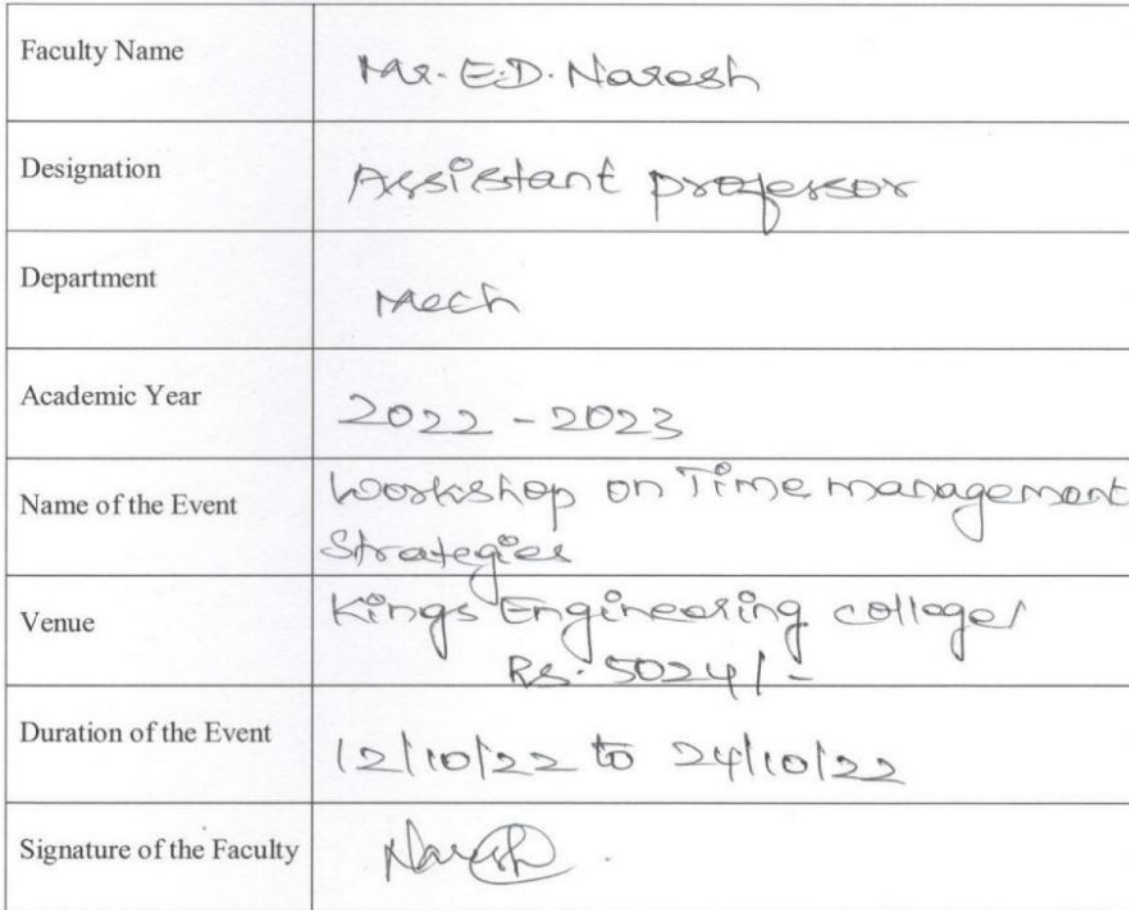 Faculty Name
Mr. E.D. Naresh
Designation
Assistant professor
Department
Mech
Academic Year
2022 - 2023
Name of the Event
Workshop on Time management
Strategies
Venue
Kings Engineering college/
Rs. 5024/-
Duration of the Event
12/10/22 to 24/10/22
Signature of the Faculty
Naresh